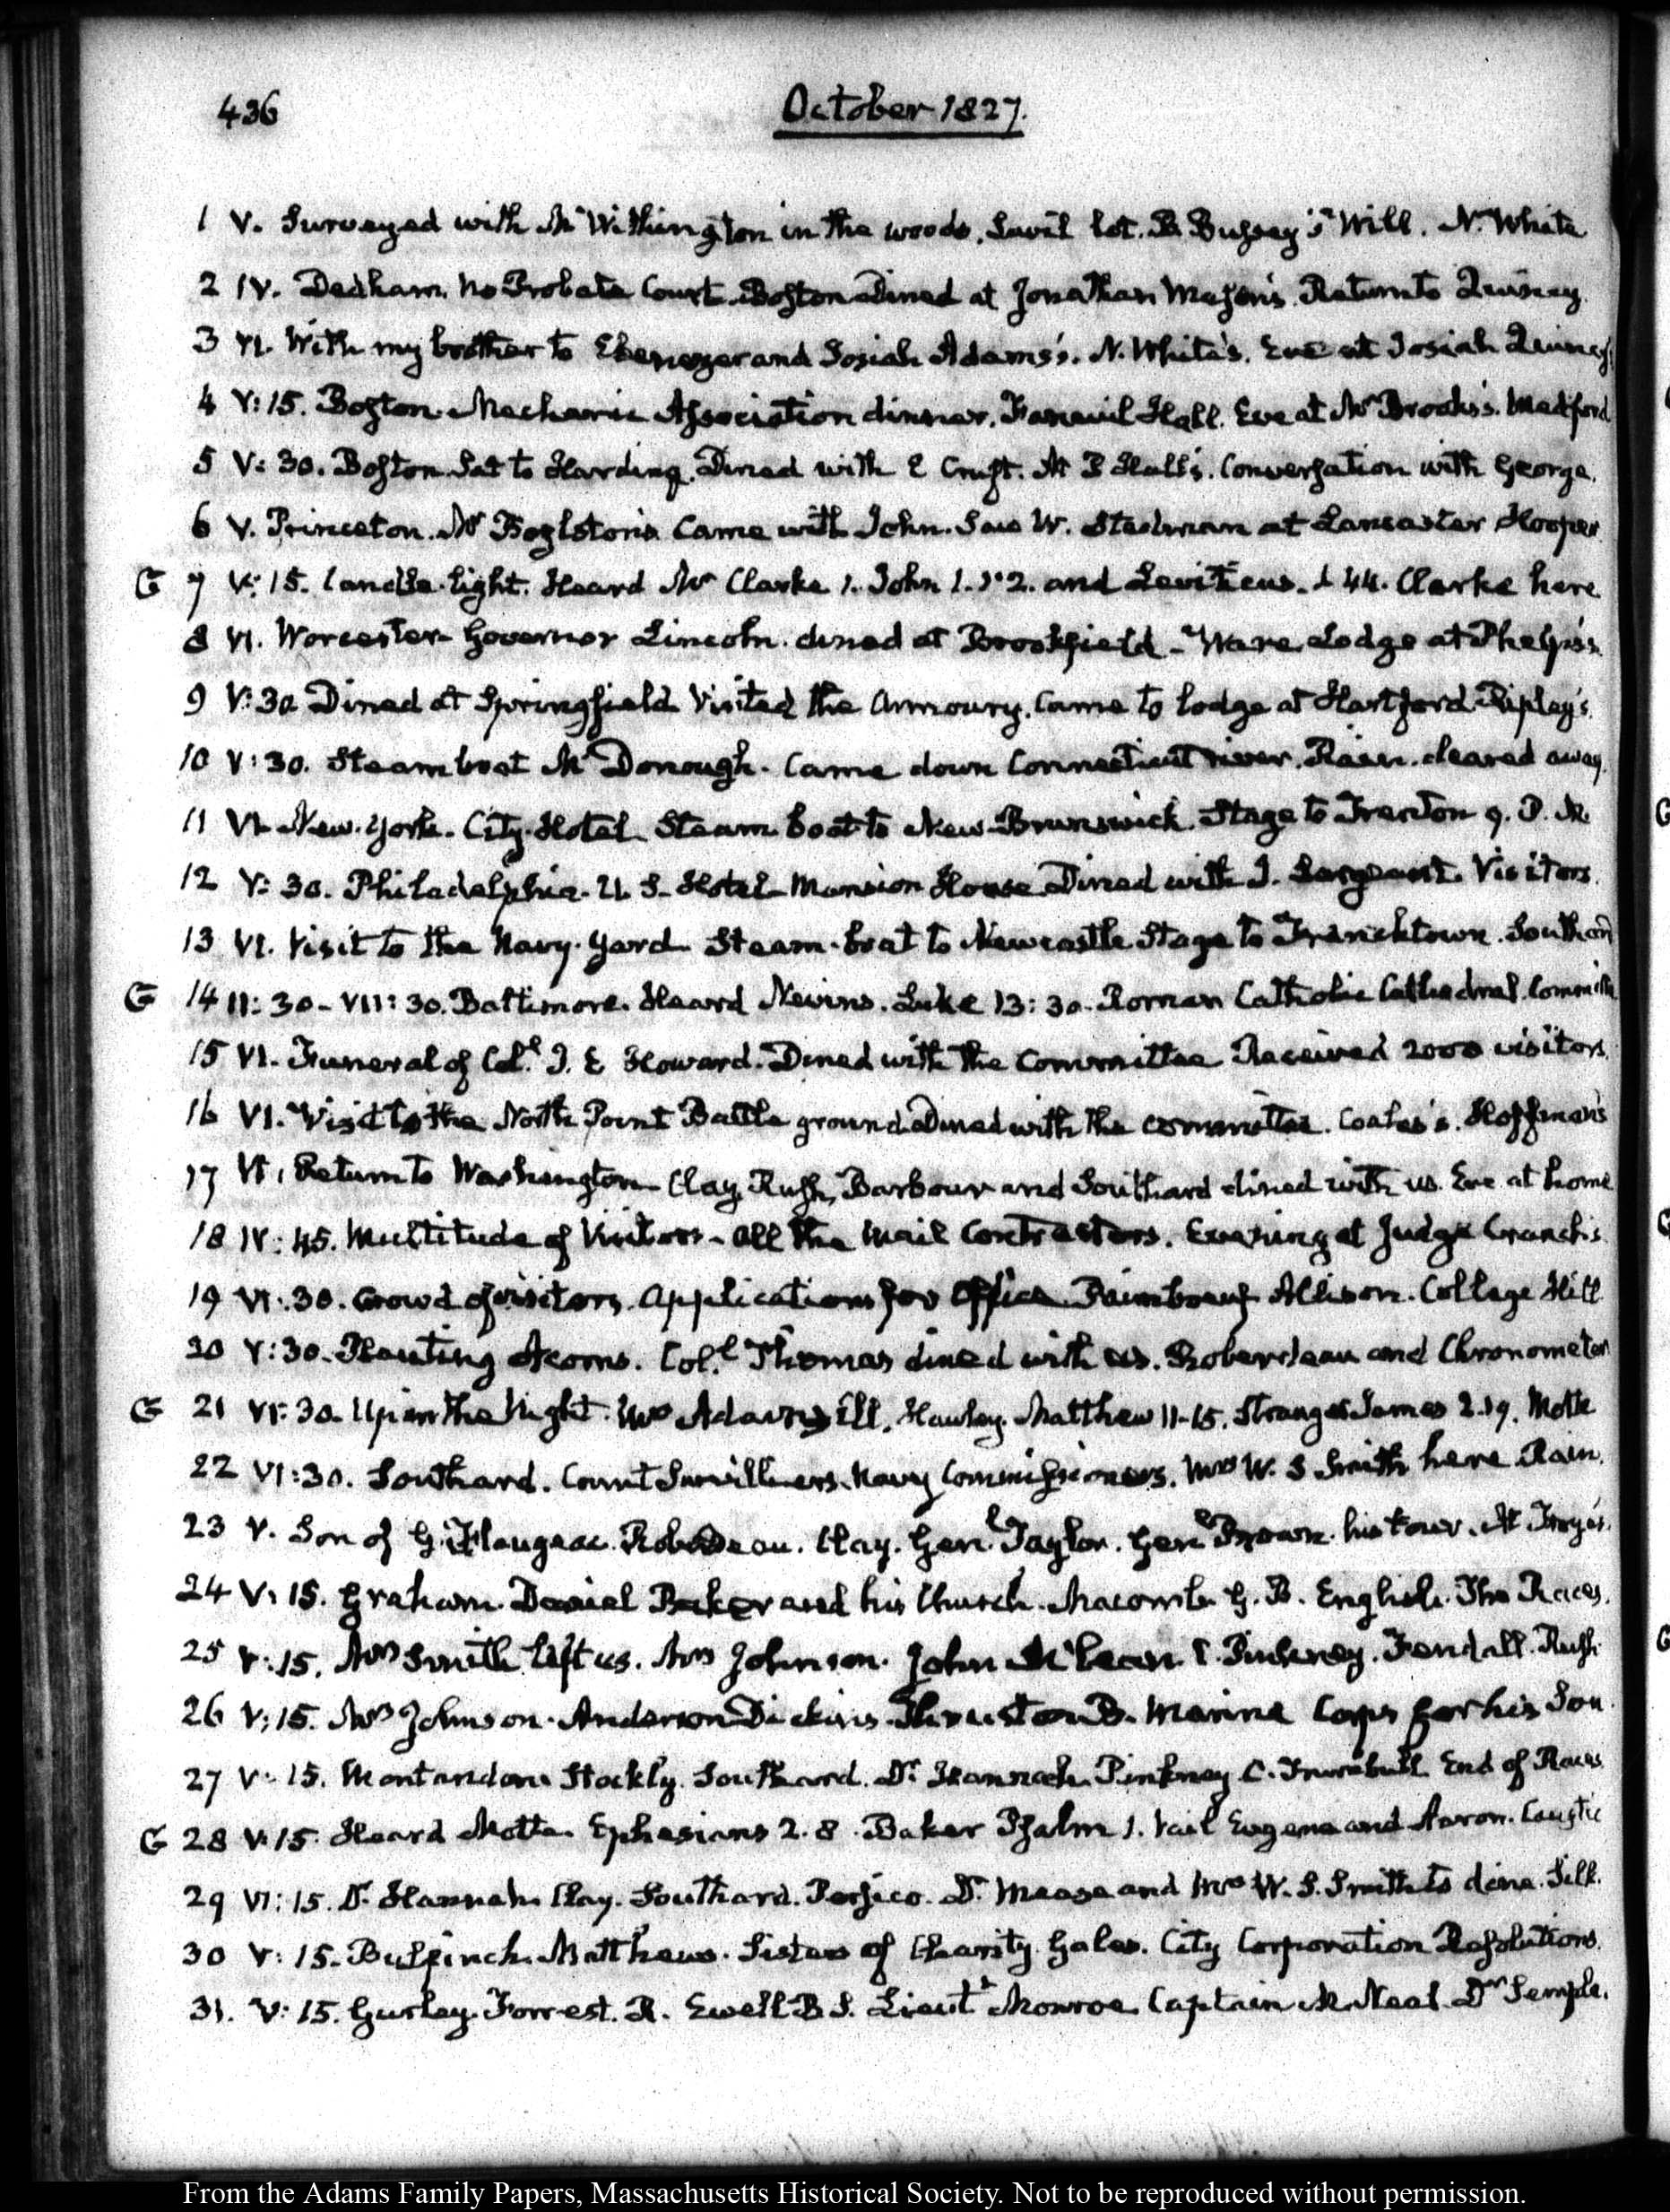 436
October 1827.
1 V. Surveyed with Mr Withington in the woods. Savil lot. B Bussey's Will. N. White
2 IV. Dedham. No Probate Court. Boston Dined at Jonathan Mason's. Return to Quincy
3 VI. With my brother to Ebenezer and Josiah Adams's. N. White's. Eve at Josiah Quincy's
4 V:15. Boston. Mechanic Association dinner. Faneuil Hall. Eve at Mr Brooks's. Medford
5 V:30. Boston. Sat to Harding. Dined with E Cruft. At J Hall's. Conversation with George.
6 V. Princeton. Mr Boylston's. Came with John. Saw W. Stedman at Lancaster Hooper
G 7 V:15. Candle-light. Heard Mr Clarke 1. John 1. 1:2. and Leviticus. 44. Clarke here
8 VI. Worcester Governor Lincoln. dined at Brookfield - Ware Lodge at Phelps's
9 V:30 Dined at Springfield Visited the Armoury. Came to lodge at Hartford Ripley's.
10 V:30. Steamboat McDonough. Came down Connecticut river. Rain. cleared away.
11 VI. New-York. City-Hotel Steam boat to New-Brunswick. Stage to Trenton 9. P. M.
12 V:30. Philadelphia. U. S. Hotel - Mansion House Dined with J. Sergeant. Visitors.
13 VI. Visit to the Navy-Yard Steam-boat to Newcastle Stage to Frenchtown. Southard
G 14 II:30 - VIII:30. Baltimore. Heard Nevins. Luke 13:30. Roman Catholic Cathedral. Committee
15 VI. Funeral of Coll. J. E Howard. Dined with the Committee Received 2000 visitors.
16 VI. Visit to the North Point Battle ground. Dined with the committee. Coales's. Hoffman's
17 VI. Return to Washington Clay, Rush, Barbour and Southard dined with us. Eve at home
18 IV:45. Multitude of Visitors - all the Mail Contractors. Evening at Judge Cranch's.
19 VI:30. Crowd of visitors. Applications for Office Allison. College Hill
20 V:30. Planting Acorns. Coll. Thomas dined with us. Roberdeau and Chronometer
G 21 VI:30. Up in the Night. Mrs Adams Ill. Hawley. Matthew 11-15. Stranger James 2.19. Motte
22 VI:30. Southard. Count Survilliers. Navy Commissioners. Mrs W. S Smith here Rain.
23 V. Son of G. Flaugeac. Roberdeau. Clay. Genl. Taylor. Genl Brown. his tour. At Frye's.
24 V:15. Graham. Daniel Baker and his Church. Macomb. G. B. English. The Races.
25 V:15. Mrs Smith left us. Mrs Johnson. John McLean. Pinkney. Fendall. Rush
26 V:15. Mrs Johnson. Anderson Dickins. Thruston B. Marine Corps for his Son.
27 V:15. Montandon. Stockly. Southard. Dr. Hannah. Pinkney C. Turnbull. End of Races
G 28 V:15. Heard Motte. Ephesians 2. 8. Baker Psalm 1. Vail Eugene and Aaron. Caustic
29 VI:15. Dr. Hannah. Clay. Southard. Persico. Dr. Mease and Mrs W. S. Smith to dine. Silk.
30 V:15. Bulfinch. Matthews. Sisters of Charity. Gales. City Corporation Resolutions.
31. V:15. Gurley. Forrest. R. Ewell B S. Lieutt Monroe Captain McNeal. Dr Semple.
From the Adams Family Papers, Massachusetts Historical Society. Not to be reproduced without permission.